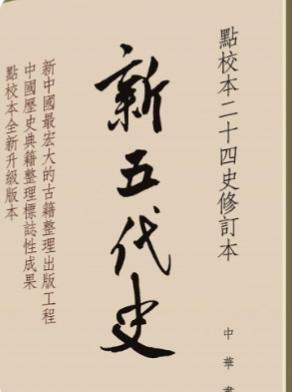 點校本二十四史修訂本
新五代史
新中國最宏大的古籍整理出版工程
中國歷史典籍整理標誌性成果
點校本全新升級版本
中華書